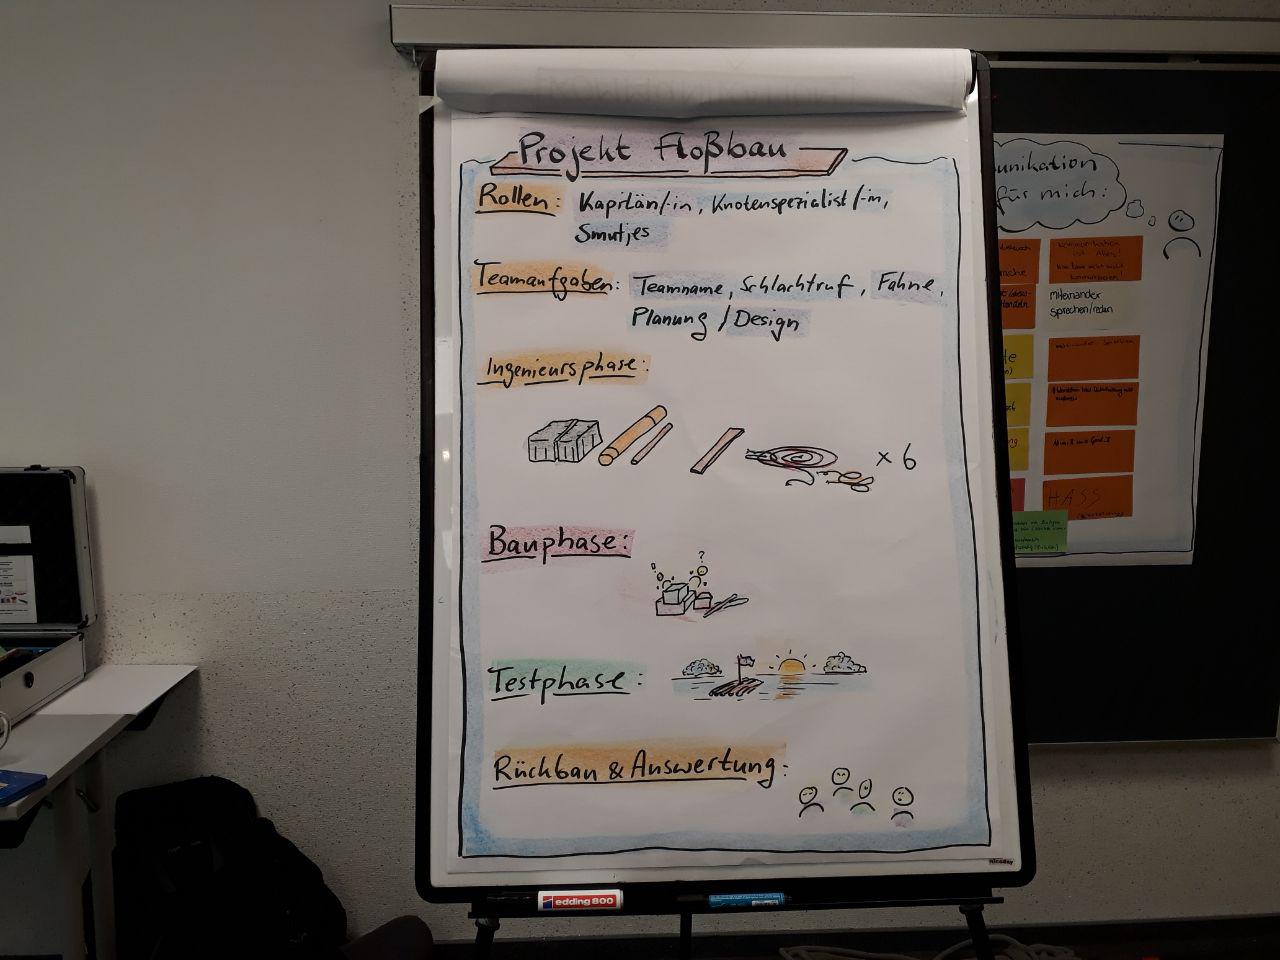 Projekt Floßbau
Rollen: Kapitän/-in, Knotenspezialist/-in,
Smutjes
Teamaufgaben: Teamname, Schlachtruf, Fahne,
Planung / Design
Ingenieursphase:
x 6
Bauphase:
?
Testphase:
Rückbau & Auswertung:
nicoday
edding 800
unikation
für mich:
Kommunikation
ist Alles!
miteinander
sprechen/reden
HASS